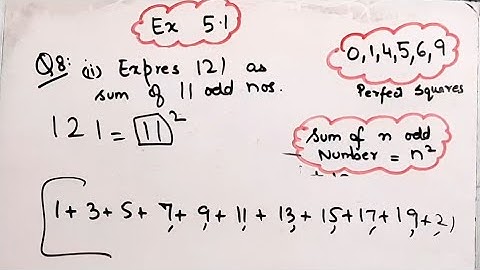 Ex 5.1
Q8: (ii) Expres 121 as
sum of 11 odd nos.
121 = 11²
0,1,4,5,6,9
Perfect Squares
Sum of n odd
Number = n²
1+3+5+7+9+11+13+15+17+19+21